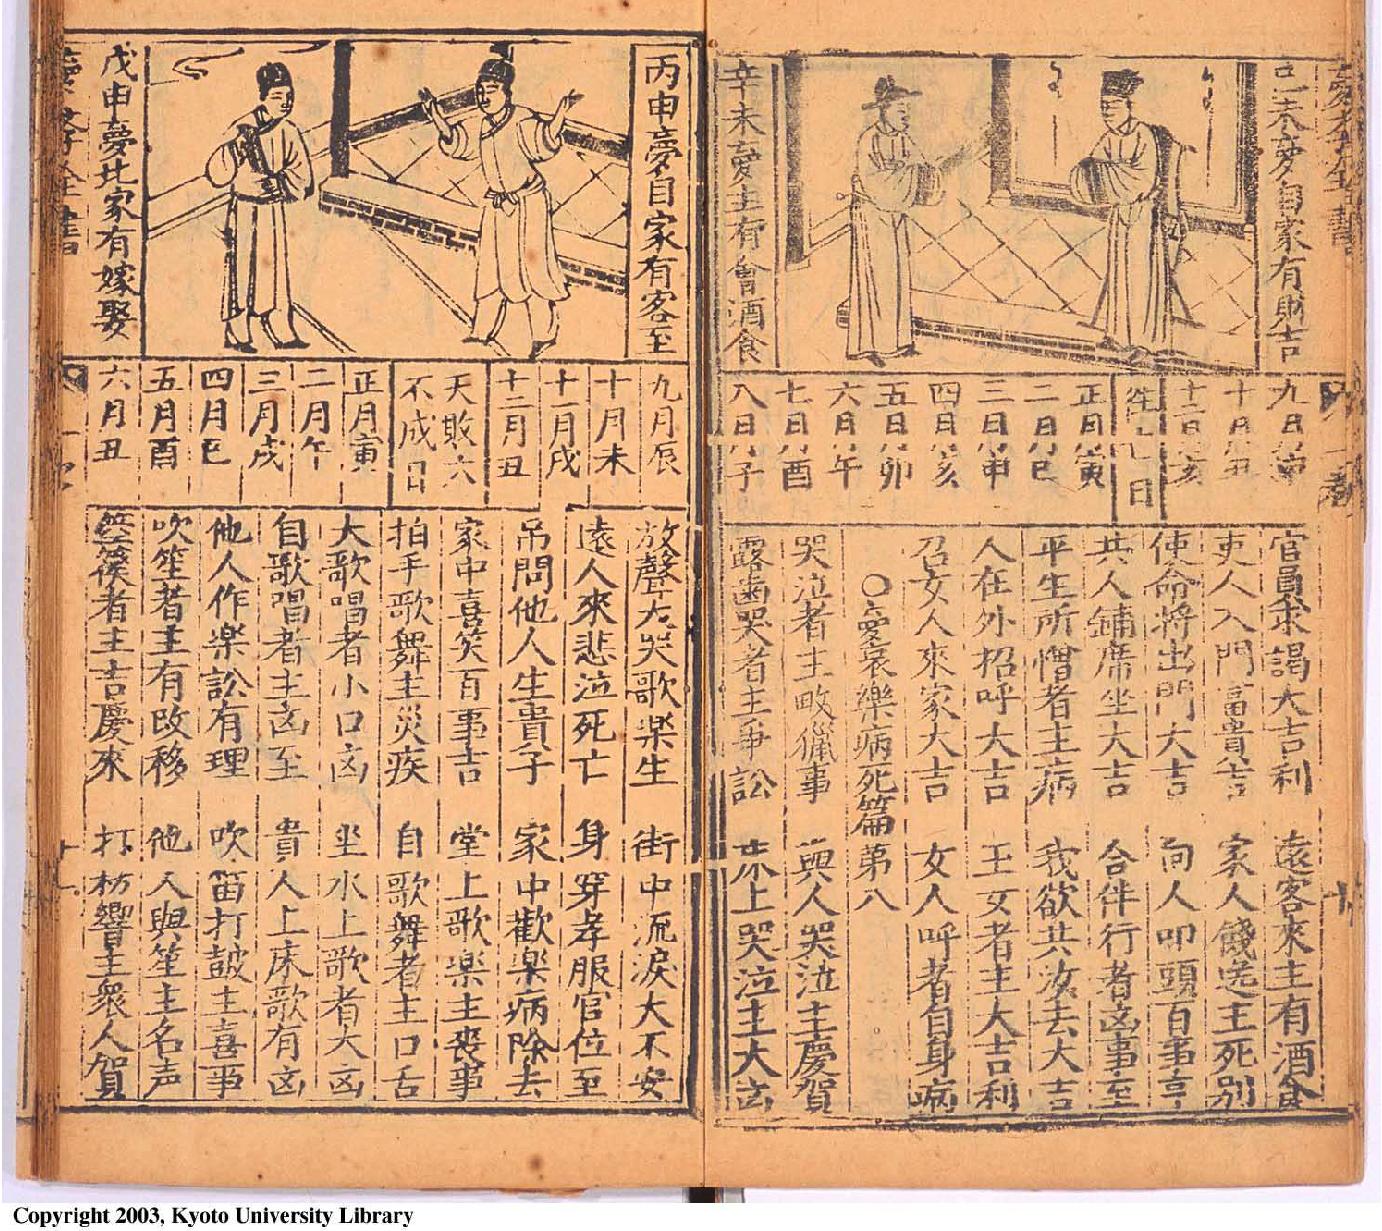 己未夢自家有財吉
辛未憂主有會酒食
十二月亥
正月寅
二月巳
三月申
四月亥
五月卯
六月午
七月酉
八月子
官員求謁大吉利
遠客來主有酒食
吏人入門富貴吉
家人餞送主死別
使命將出門大吉
向人叩頭百事亨
共人鋪席坐大吉
合伴行者凶事至
平生所憎者主病
我欲共汝去大吉
人在外招呼大吉
王女者主大吉利
召女人來家大吉
女人呼者自身病
○憂哀樂病死篇第八
哭泣者主畋獵事
與人哭泣主慶賀
露齒哭者主爭訟
床上哭泣主大凶
丙申夢自家有客至
戊申夢比家有嫁娶
九月辰
十月未
十一月戌
十二月丑
天敗六
不成日
正月寅
二月午
三月戌
四月巳
五月酉
六月丑
放聲大哭歌楽生
街中流淚大不安
遠人來悲泣死亡
身穿孝服官位至
吊問他人生貴子
家中歡楽病除去
家中喜笑百事吉
堂上歌楽主喪事
拍手歌舞主災疾
自歌舞者主口舌
大歌唱者小口凶
坐水上歌者大凶
自歌唱者主凶至
貴人上床歌有凶
他人作楽訟有理
吹笛打皷主喜事
吹笙者主有改移
他人與笙主名声
箜篌者主吉慶來
打枋響主衆人賀
Copyright 2003, Kyoto University Library